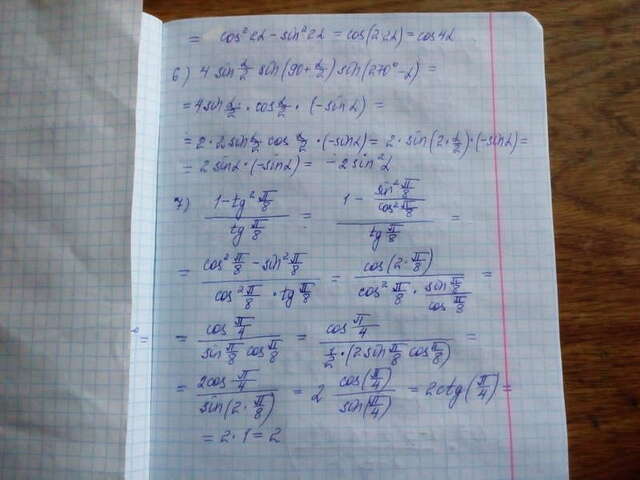 = cos²2α - sin²2α = cos(2·2α) = cos4α
6) 4 sin α/2 sin(90+α/2) sin(270°-α) =
= 4 sin α/2 · cos α/2 · (-sinα) =
= 2·2 sin α/2 cos α/2 · (-sinα) = 2·sin(2·α/2)·(-sinα) =
= 2 sinα·(-sinα) = -2sin²α
7) (1-tg² π/8)/(tg π/8) = (1 - (sin² π/8)/(cos² π/8))/(tg π/8) =
= (cos² π/8 - sin² π/8)/(cos² π/8 · tg π/8) = (cos(2·π/8))/(cos² π/8 · (sin π/8)/(cos π/8)) =
= (cos π/4)/(sin π/8 cos π/8) = (cos π/4)/(1/2·(2sin π/8 cos π/8)) =
= (2cos π/4)/(sin(2·π/8)) = 2 (cos(π/4))/(sin(π/4)) = 2ctg(π/4) =
= 2·1 = 2